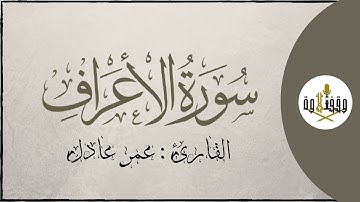 سُورَةُ الأَعْرَافِ
القارئ : عمر عادل